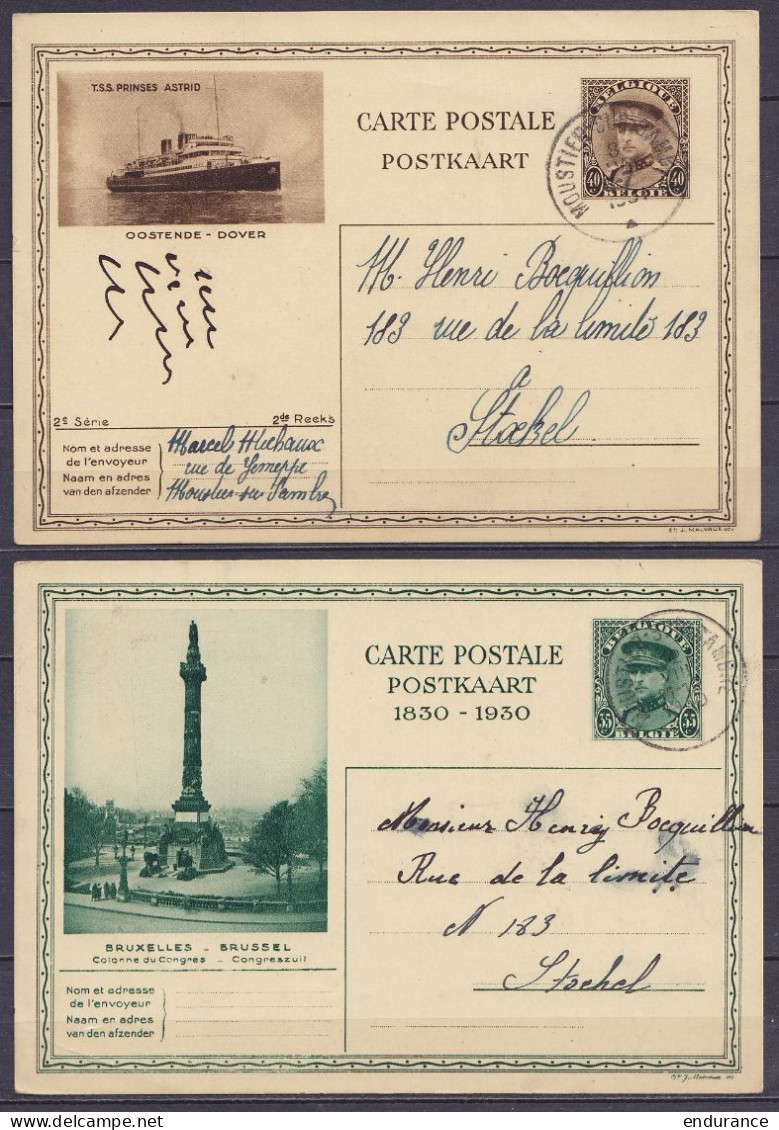 T.S.S. PRINSES ASTRID
OOSTENDE - DOVER
CARTE POSTALE
POSTKAART
BELGIQUE
40 40
BELGIË
MOUSTIER
M. Henri Bocquillion
183 rue de la limite 183
a
Stockel
2e Série 2de Reeks
Nom et adresse
de l'envoyeur
Naam en adres
van den afzender
Marcel Michaux
rue de Jemeppe
Moustier sur Sambre
Etts J. MALVAUX
CARTE POSTALE
POSTKAART
1830 - 1930
BELGIQUE
35 35
BELGIË
SAMBRE
BRUXELLES - BRUSSEL
Colonne du Congres - Congreszuil
Monsieur Henry Bocquillion
Rue de la limite
N 183
Stockel
Nom et adresse
de l'envoyeur
Naam en adres
van den afzender
Etts J. Malvaux
delcampe.net
endurance